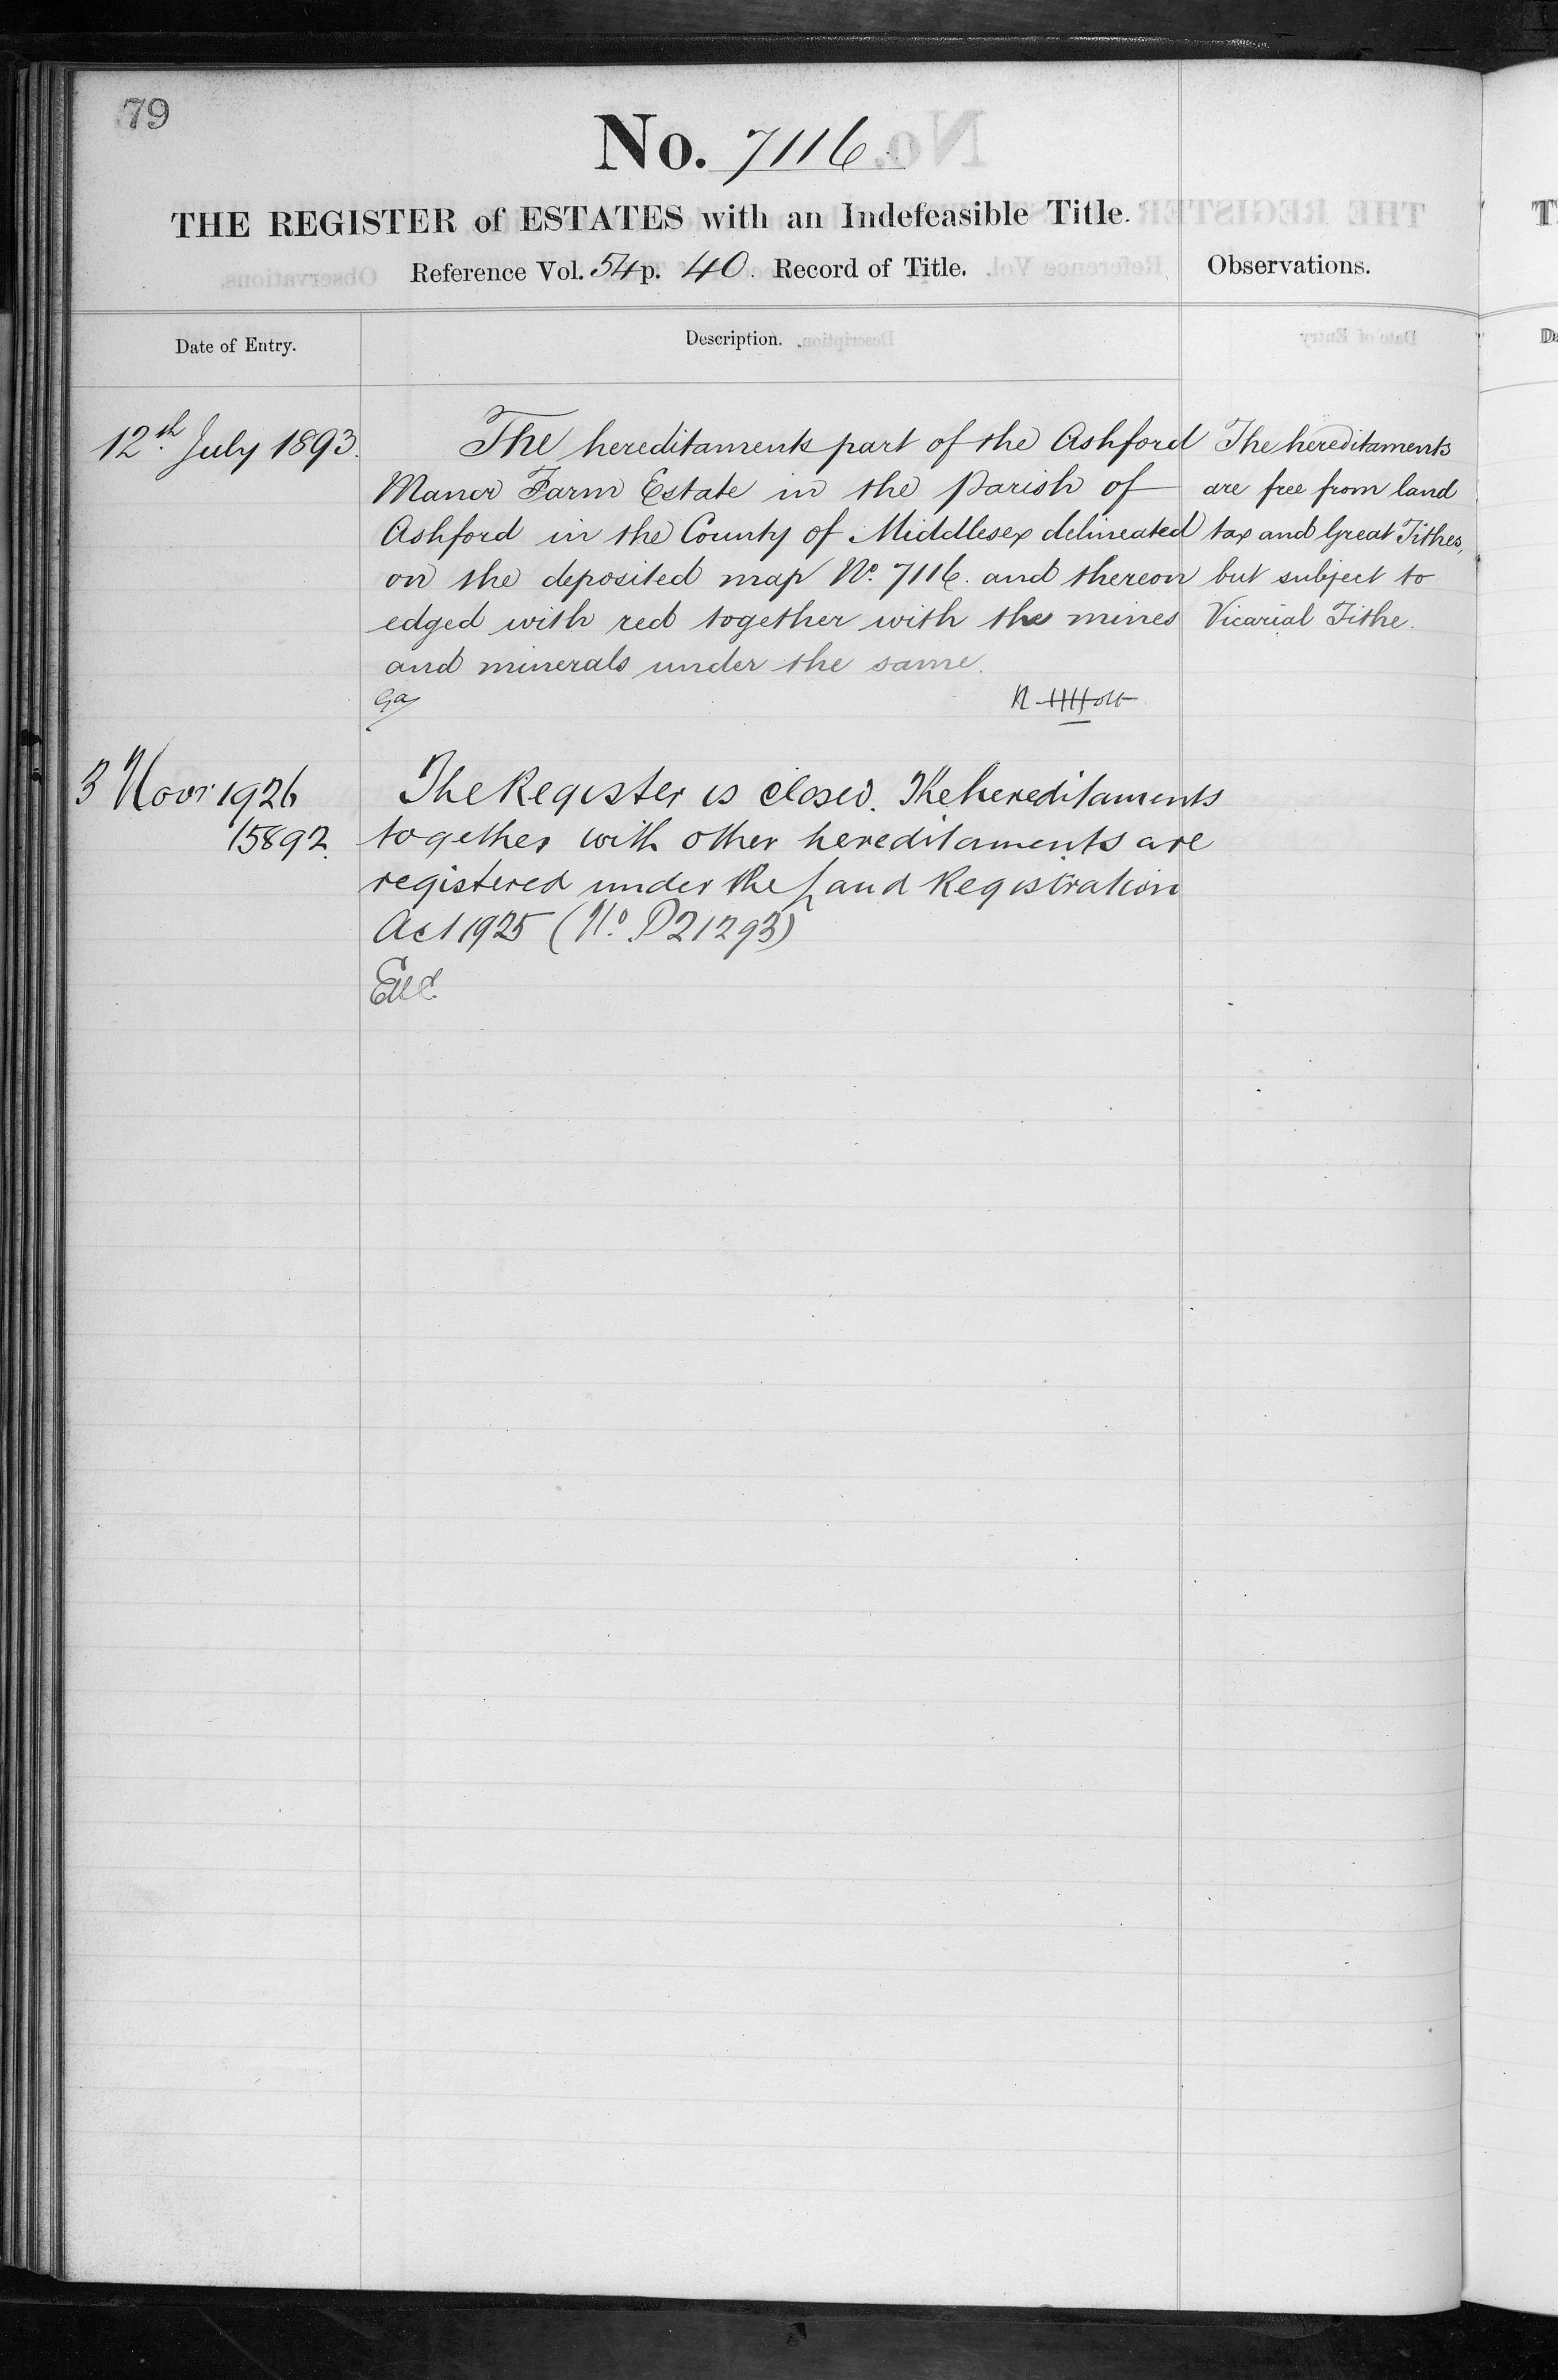 79
No. 7116
THE REGISTER of ESTATES with an Indefeasible Title.
Reference Vol. 54 p. 40. Record of Title.
Observations.
Date of Entry.
Description.
12th July 1893.
The hereditaments part of the Ashford
Manor Farm Estate in the Parish of
Ashford in the County of Middlesex delineated
on the deposited map No. 7116. and thereon
edged with red together with the mines
and minerals under the same.
The hereditaments
are free from land
tax and Great Tithes,
but subject to
Vicarial Tithe.
3 Novr 1926
15892.
The Register is closed. The hereditaments
together with other hereditaments are
registered under the Land Registration
Act 1925 (No. P21293)